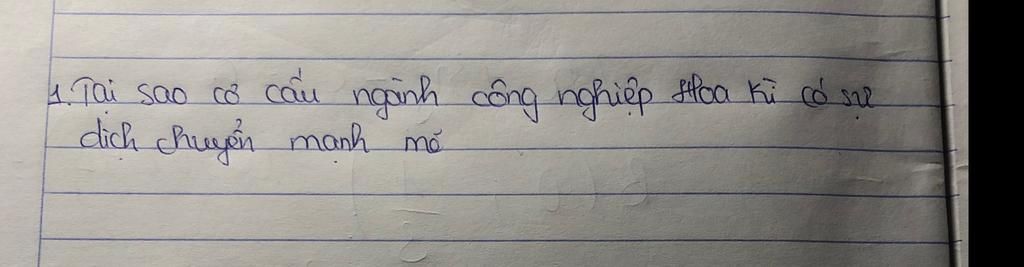 1. Tại sao cơ cấu ngành công nghiệp Hoa Kì có sự
dịch chuyển mạnh mẽ